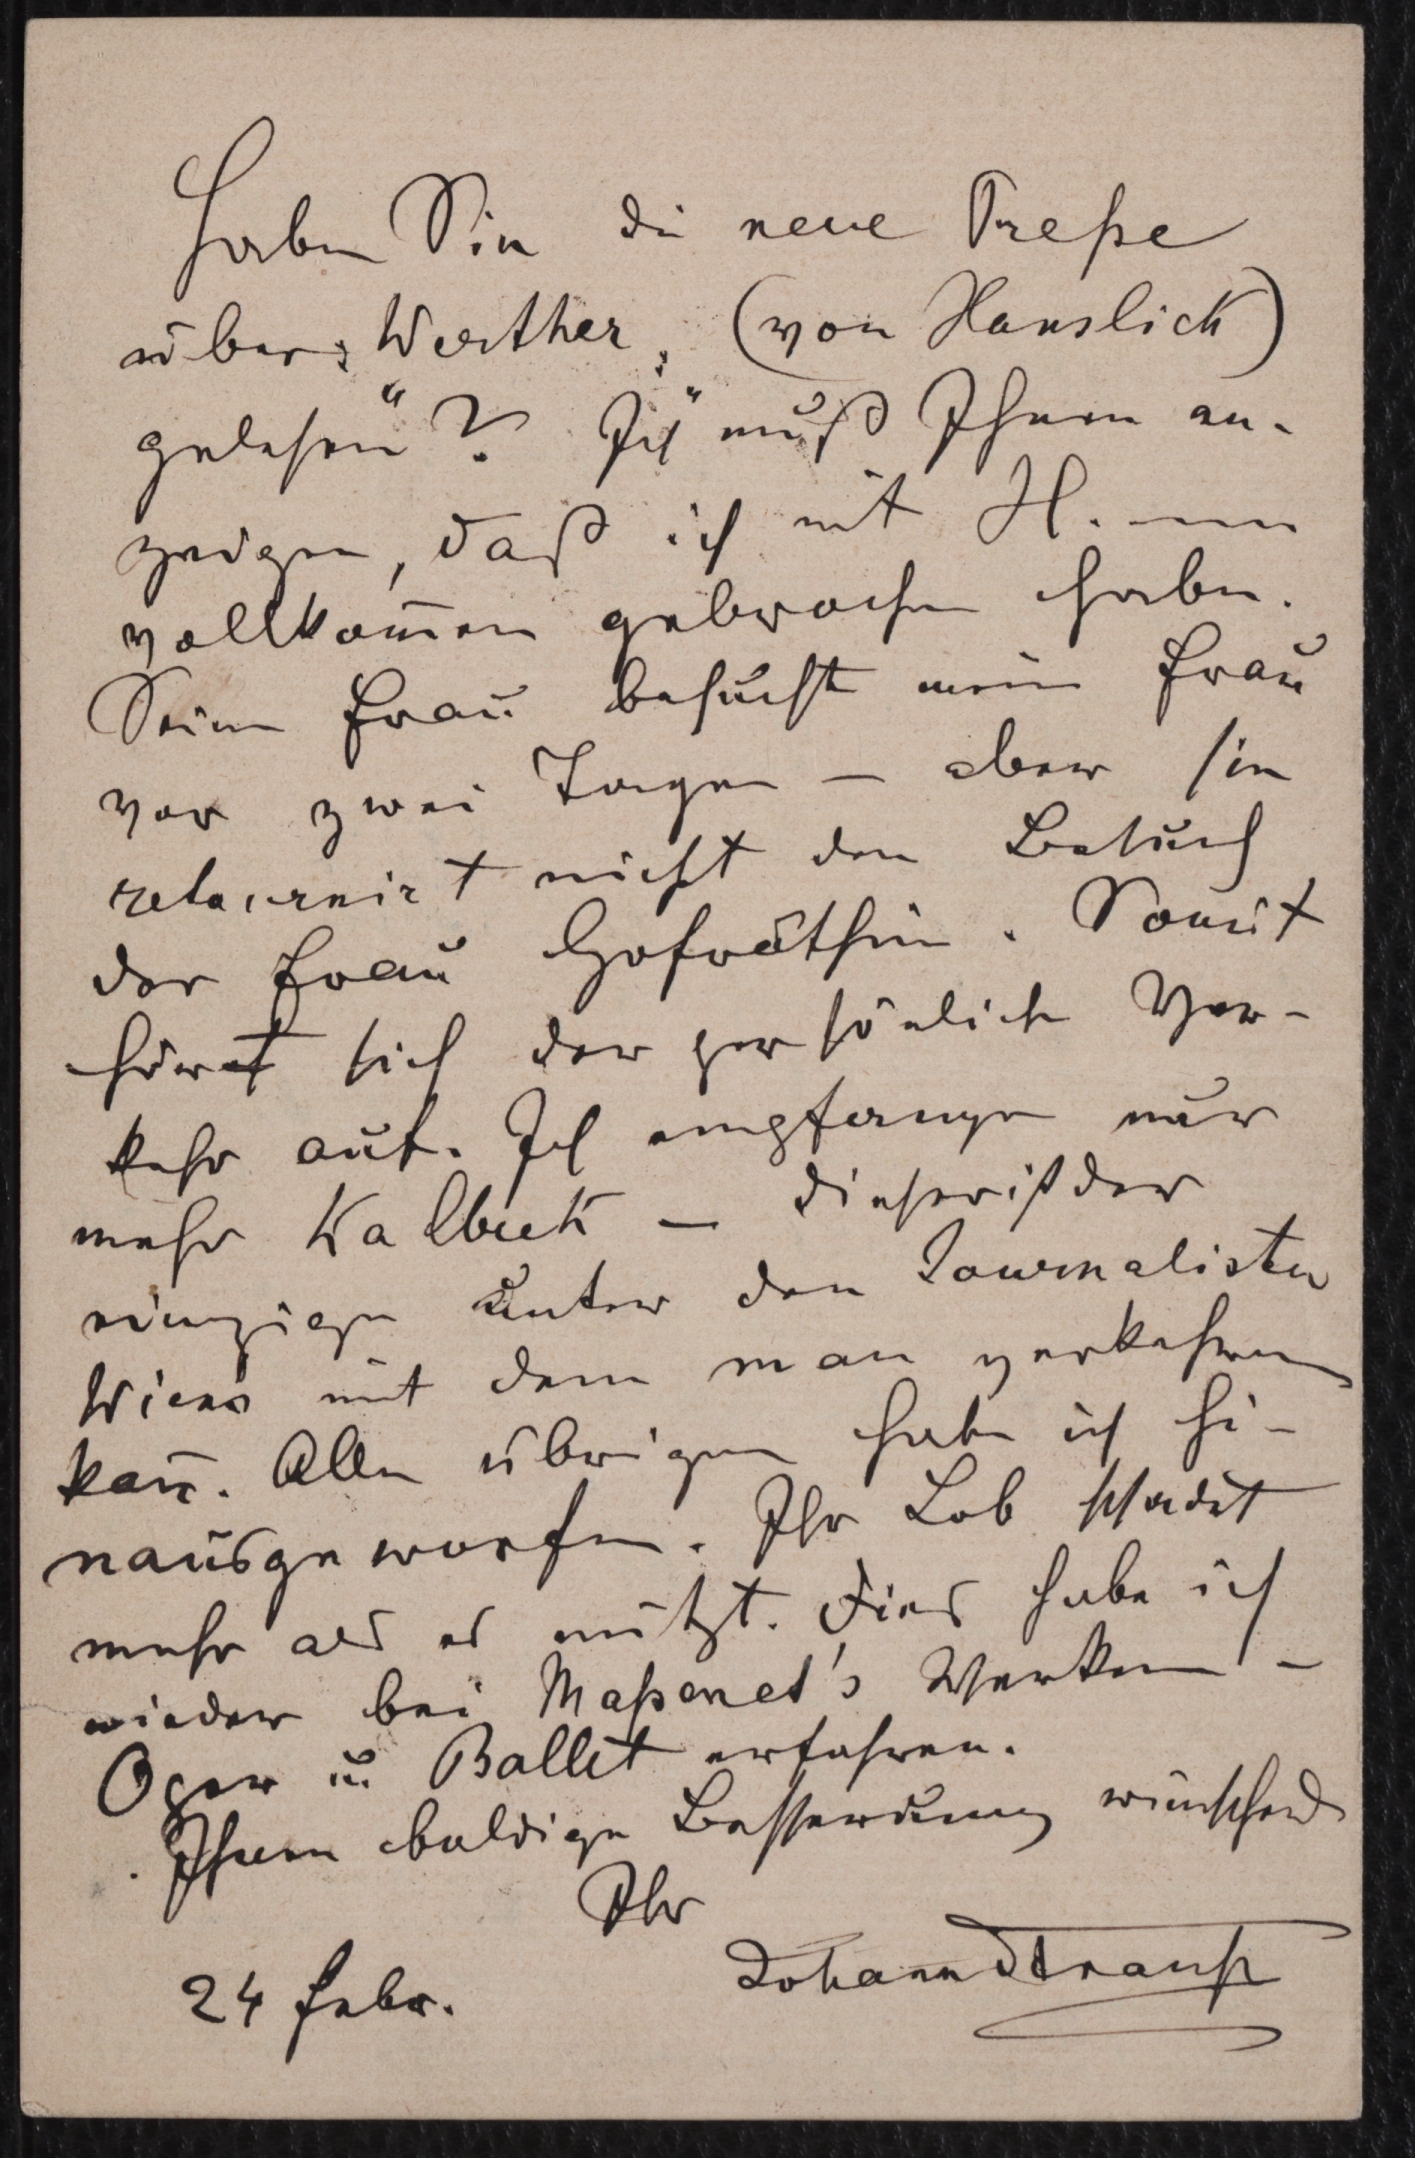 Haben Sie die neue Preße
über „Werther“ (von Hanslick)
gelesen? Ich muß Ihnen an-
zeigen, daß ich mit H. nun
vollkom̅en gebrochen habe.
Seine Frau besucht meine Frau
vor zwei Tagen – aber sie
retournirt nicht den Besuch
der Frau Hofräthin. Somit
hört sich der persönliche Ver-
kehr auf. Ich empfange nur
mehr Kalbeck – dieser ist der
einzige unter den Journalisten
Wiens mit dem man verkehren
kan̅. Alle übrigen habe ich hi-
nausgeworfen. Ihr Lob schadet
mehr als es nützt. Dies habe ich
wieder bei Maßenet's Werken –
Oper u Ballet erfahren.
Ihnen baldige Besserung wünschend
Ihr
Johann Strauß
24 Febr.